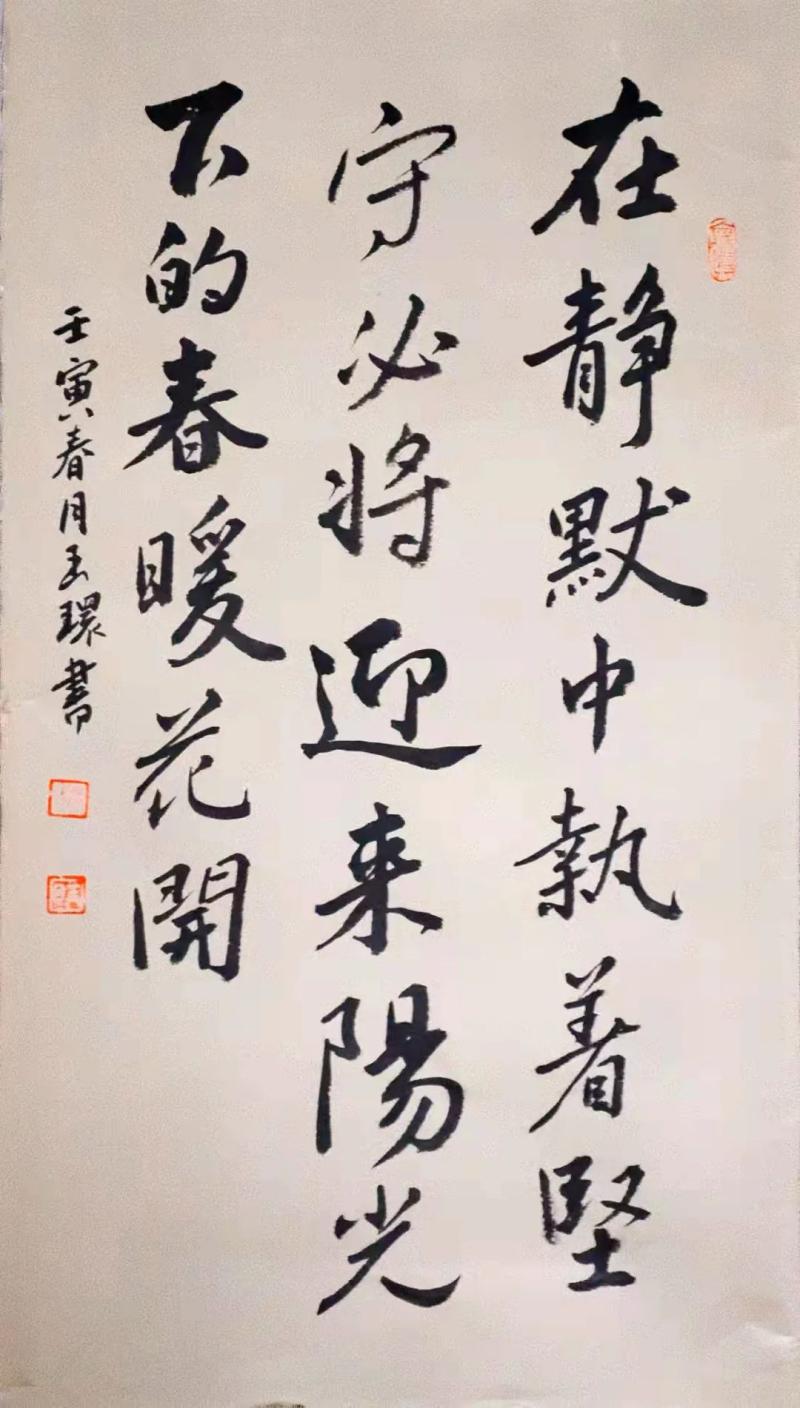 在静默中執着堅
守必將迎来陽光
下的春暖花開
壬寅春月玉環書